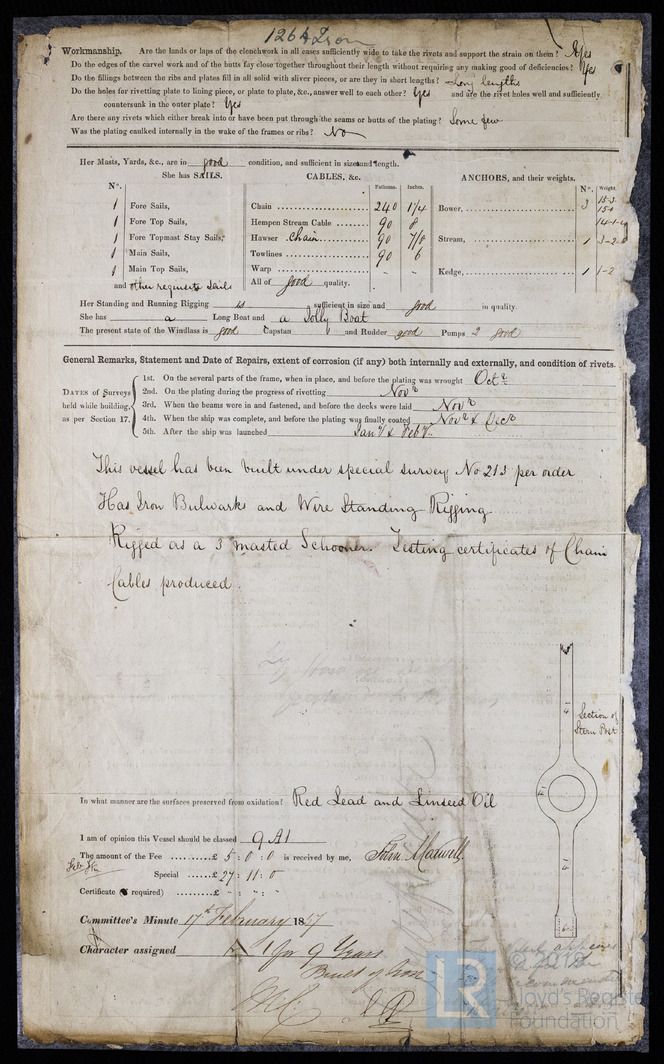 1264 Iron
Workmanship. Are the lands or laps of the clenchwork in all cases sufficiently wide to take the rivets and support the strain on them? Yes
Do the edges of the carvel work and of the butts fay close together throughout their length without requiring any making good of deficiencies? Yes
Do the fillings between the ribs and plates fill in all solid with sliver pieces, or are they in short lengths? Long lengths
Do the holes for rivetting plate to lining piece, or plate to plate, &c., answer well to each other? Yes and are the rivet holes well and sufficiently
countersunk in the outer plate? Yes
Are there any rivets which either break into or have been put through the seams or butts of the plating? Some few
Was the plating caulked internally in the wake of the frames or ribs? No
Her Masts, Yards, &c., are in good condition, and sufficient in size and length.
She has SAILS. CABLES, &c. ANCHORS, and their weights.
N°. Fathoms. Inches. N°. Weight.
1 Fore Sails, Chain 240 1 1/4 Bower, 3 15-3
1 Fore Top Sails, Hempen Stream Cable 90 8
1 Fore Topmast Stay Sails, Hawser chain 90 7/8 Stream, 1 3-2-0
1 Main Sails, Towlines 90 6
1 Main Top Sails, Warp - - Kedge, 1 1-2
and other requisite sails All of good quality.
Her Standing and Running Rigging is sufficient in size and good in quality.
She has a Long Boat and a Jolly Boat
The present state of the Windlass is good Capstan and Rudder good Pumps 2 good
General Remarks, Statement and Date of Repairs, extent of corrosion (if any) both internally and externally, and condition of rivets.
DATES of Surveys held while building, as per Section 17.
1st. On the several parts of the frame, when in place, and before the plating was wrought Octr
2nd. On the plating during the progress of rivetting Novr
3rd. When the beams were in and fastened, and before the decks were laid Novr
4th. When the ship was complete, and before the plating was finally coated Novr & Decr
5th. After the ship was launched Jany & Feby
This vessel has been built under special survey No 213 per order
Has Iron Bulwarks and Wire Standing Rigging
Rigged as a 3 masted Schooner. Testing certificates of Chain
Cables produced.
Section of
Stern Post
In what manner are the surfaces preserved from oxidation? Red Lead and Linseed Oil
I am of opinion this Vessel should be classed 9 A1
The amount of the Fee £ 5 : 0 : 0 is received by me, John Maxwell
Special £ 27 : 11 : 0
Certificate (if required) £ - : - : -
Committee's Minute 17th February 1857
Character assigned A 1 for 9 Years
Built of Iron
LR
© 2019
Lloyd's Register
Foundation